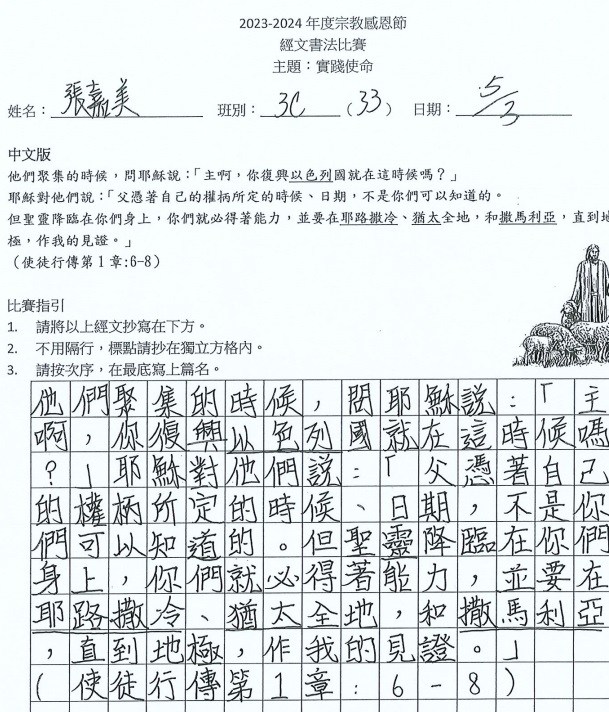 2023-2024 年度宗教感恩節
經文書法比賽
主題：實踐使命
姓名：張嘉美 班別：3C (33) 日期：5/3
中文版
他們聚集的時候，問耶穌說：「主啊，你復興以色列國就在這時候嗎？」
耶穌對他們說：「父憑著自己的權柄所定的時候、日期，不是你們可以知道的。
但聖靈降臨在你們身上，你們就必得著能力，並要在耶路撒冷、猶太全地，和撒馬利亞，直到地
極，作我的見證。」
（使徒行傳第 1 章:6-8）
比賽指引
1. 請將以上經文抄寫在下方。
2. 不用隔行，標點請抄在獨立方格內。
3. 請按次序，在最底寫上篇名。
他們聚集的時候，問耶穌說：「主
啊，你復興以色列國就在這時候嗎
？」耶穌對他們說：「父憑著自己
的權柄所定的時候、日期，不是你
們可以知道的。但聖靈降臨在你們
身上，你們就必得著能力，並要在
耶路撒冷、猶太全地，和撒馬利亞
，直到地極，作我的見證。」
(使徒行傳第1章:6-8)